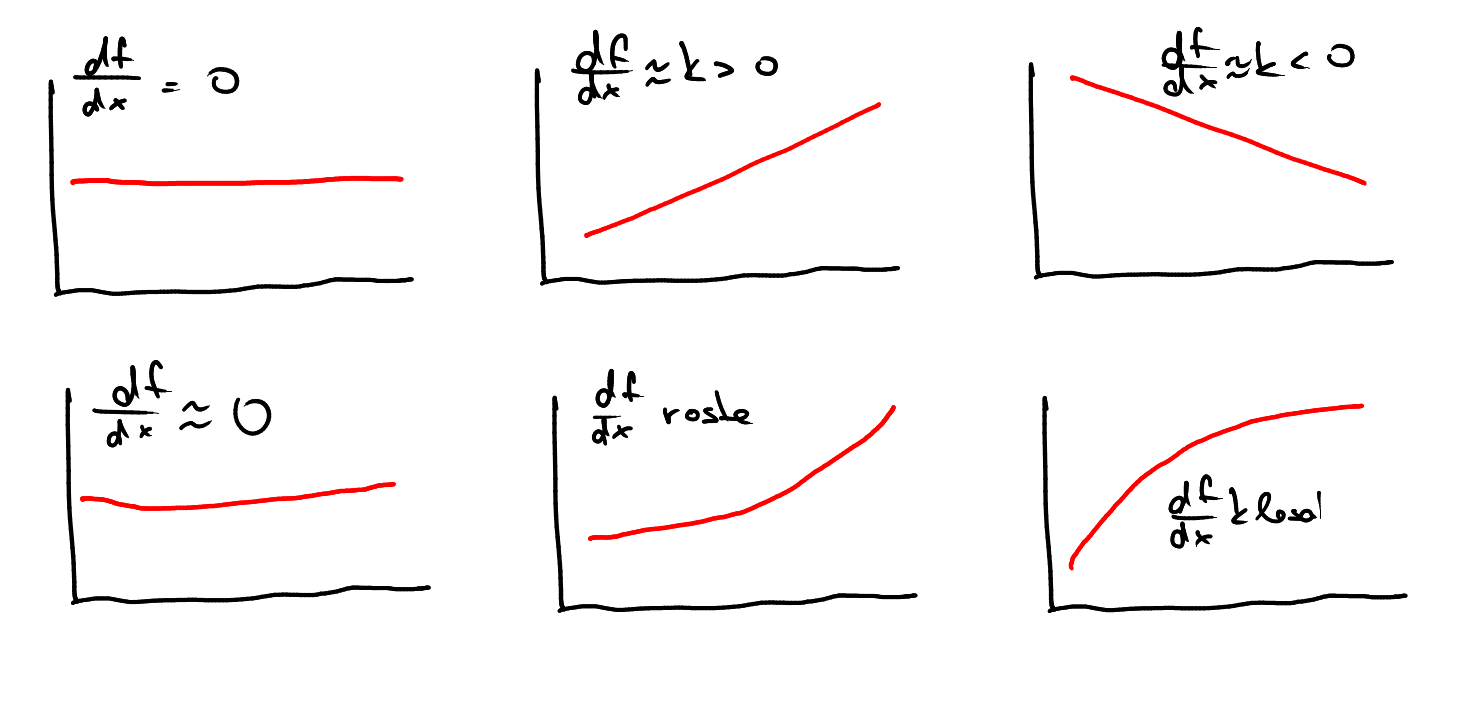 df/dx = 0
df/dx ≈ k > 0
df/dx ≈ k < 0
df/dx ≈ 0
df/dx roste
df/dx klesal